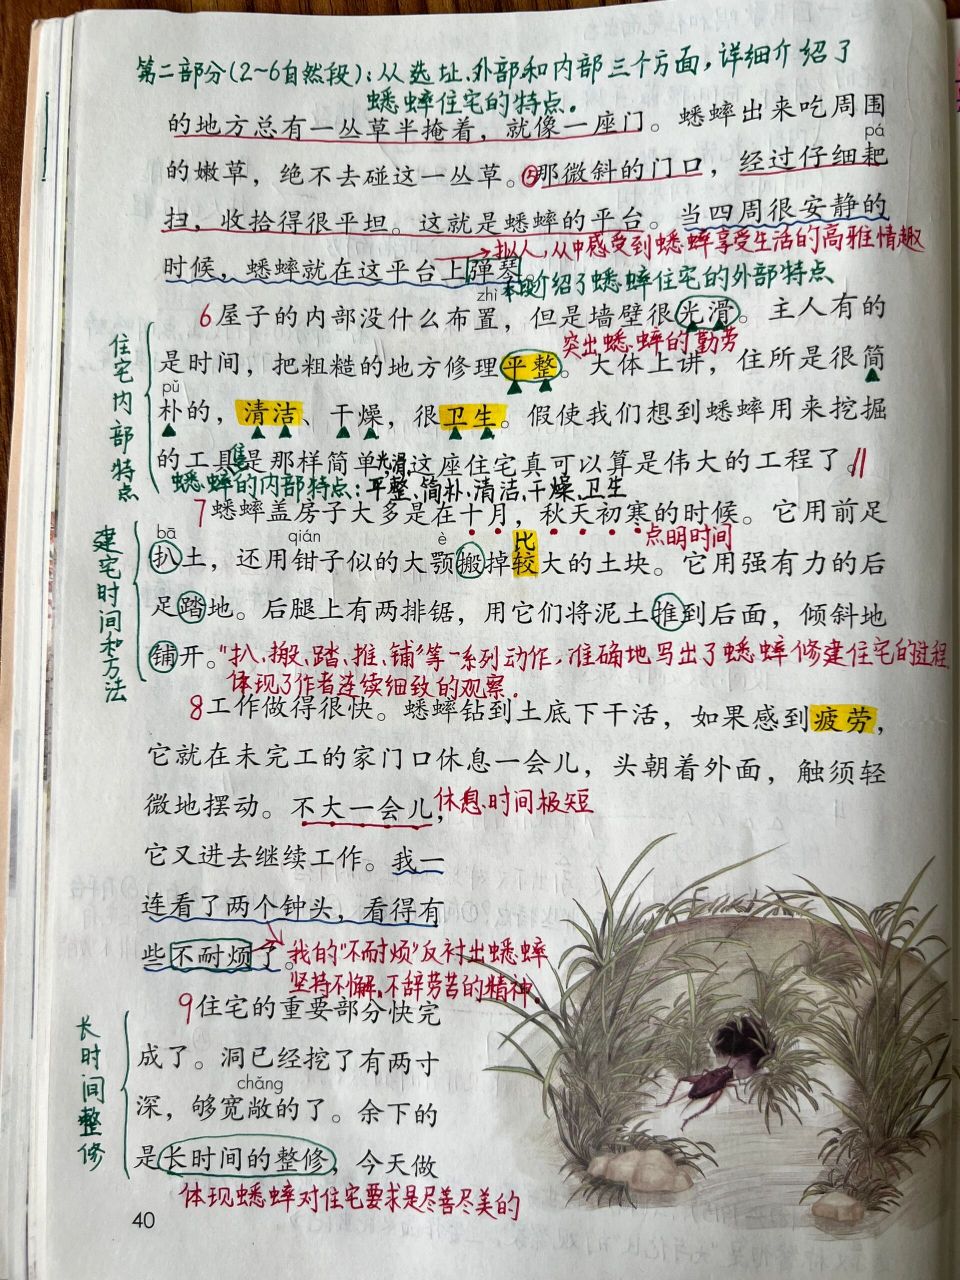 第二部分(2~6自然段)：从选址、外部和内部三个方面，详细介绍了
蟋蟀住宅的特点．
的地方总有一丛草半掩着，就像一座门。蟋蟀出来吃周围
pá
的嫩草，绝不去碰这一丛草。⑤那微斜的门口，经过仔细耙
扫，收拾得很平坦。这就是蟋蟀的平台。当四周很安静的
拟人，从中感受到蟋蟀享受生活的高雅情趣
时候，蟋蟀就在这平台上弹琴。
本段介绍了蟋蟀住宅的外部特点
zhì
6屋子的内部没什么布置，但是墙壁很光滑。主人有的
突出蟋蟀的勤劳
是时间，把粗糙的地方修理平整。大体上讲，住所是很简
pǔ
朴的，清洁、干燥，很卫生。假使我们想到蟋蟀用来挖掘
的工具是那样简单，这座住宅真可以算是伟大的工程了。
住宅内部特点
蟋蟀的内部特点：光滑、平整、简朴、清洁、干燥、卫生
7蟋蟀盖房子大多是在十月，秋天初寒的时候。它用前足
点明时间
bā qián è
扒土，还用钳子似的大颚搬掉比较大的土块。它用强有力的后
足踏地。后腿上有两排锯，用它们将泥土推到后面，倾斜地
铺开。
"扒、搬、踏、推、铺"等一系列动作，准确地写出了蟋蟀修建住宅的过程
体现了作者连续细致的观察．
建宅时间和方法
8工作做得很快。蟋蟀钻到土底下干活，如果感到疲劳，
它就在未完工的家门口休息一会儿，头朝着外面，触须轻
微地摆动。不大一会儿，
休息时间极短
它又进去继续工作。我一
连看了两个钟头，看得有
些不耐烦了。
我的"不耐烦"反衬出蟋蟀
坚持不懈，不辞劳苦的精神．
9住宅的重要部分快完
成了。洞已经挖了有两寸
chǎng
深，够宽敞的了。余下的
是长时间的整修，今天做
长时间整修
体现蟋蟀对住宅要求是尽善尽美的
40